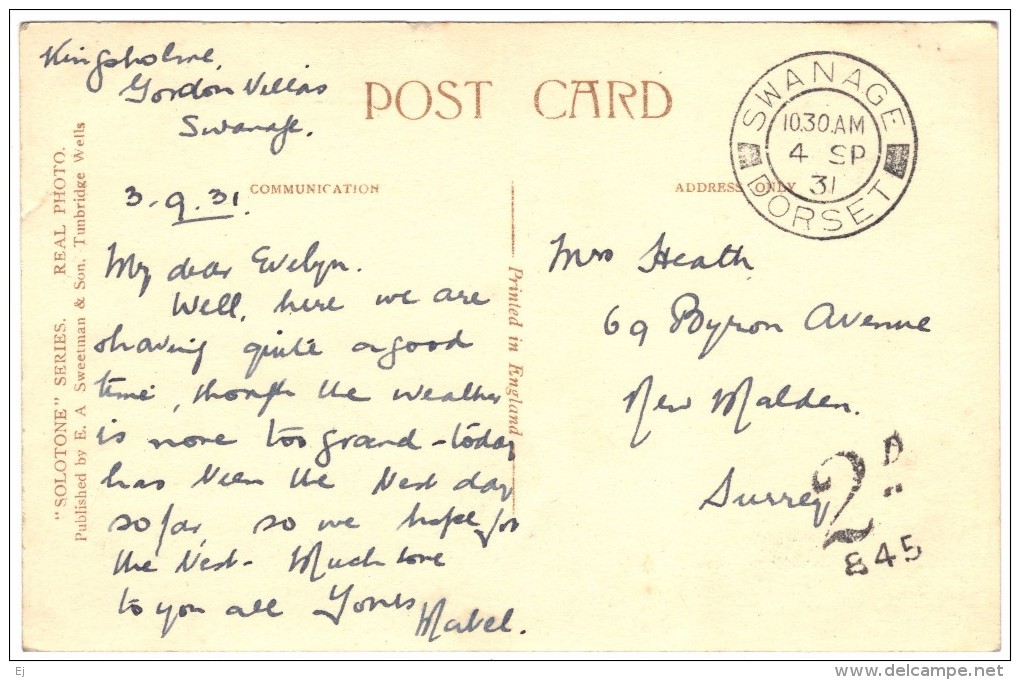 Kingsholme,
Gordon Villas
Swanage.
POST CARD
SWANAGE
10.30.AM
4 SP
31
DORSET
3-9.31.
COMMUNICATION
ADDRESS ONLY
My dear Evelyn.
Well, here we are
having quite a good
time, though the weather
is none too grand - today
has been the best day
so far, so we hope for
the best. Much love
to you all Yours
Mabel.
Mrs Heath
69 Byron Avenue
New Malden.
Surrey
2D
845
"SOLOTONE" SERIES. REAL PHOTO.
Published by E. A. Sweetman & Son, Tunbridge Wells
Printed in England
Ej
www.delcampe.net